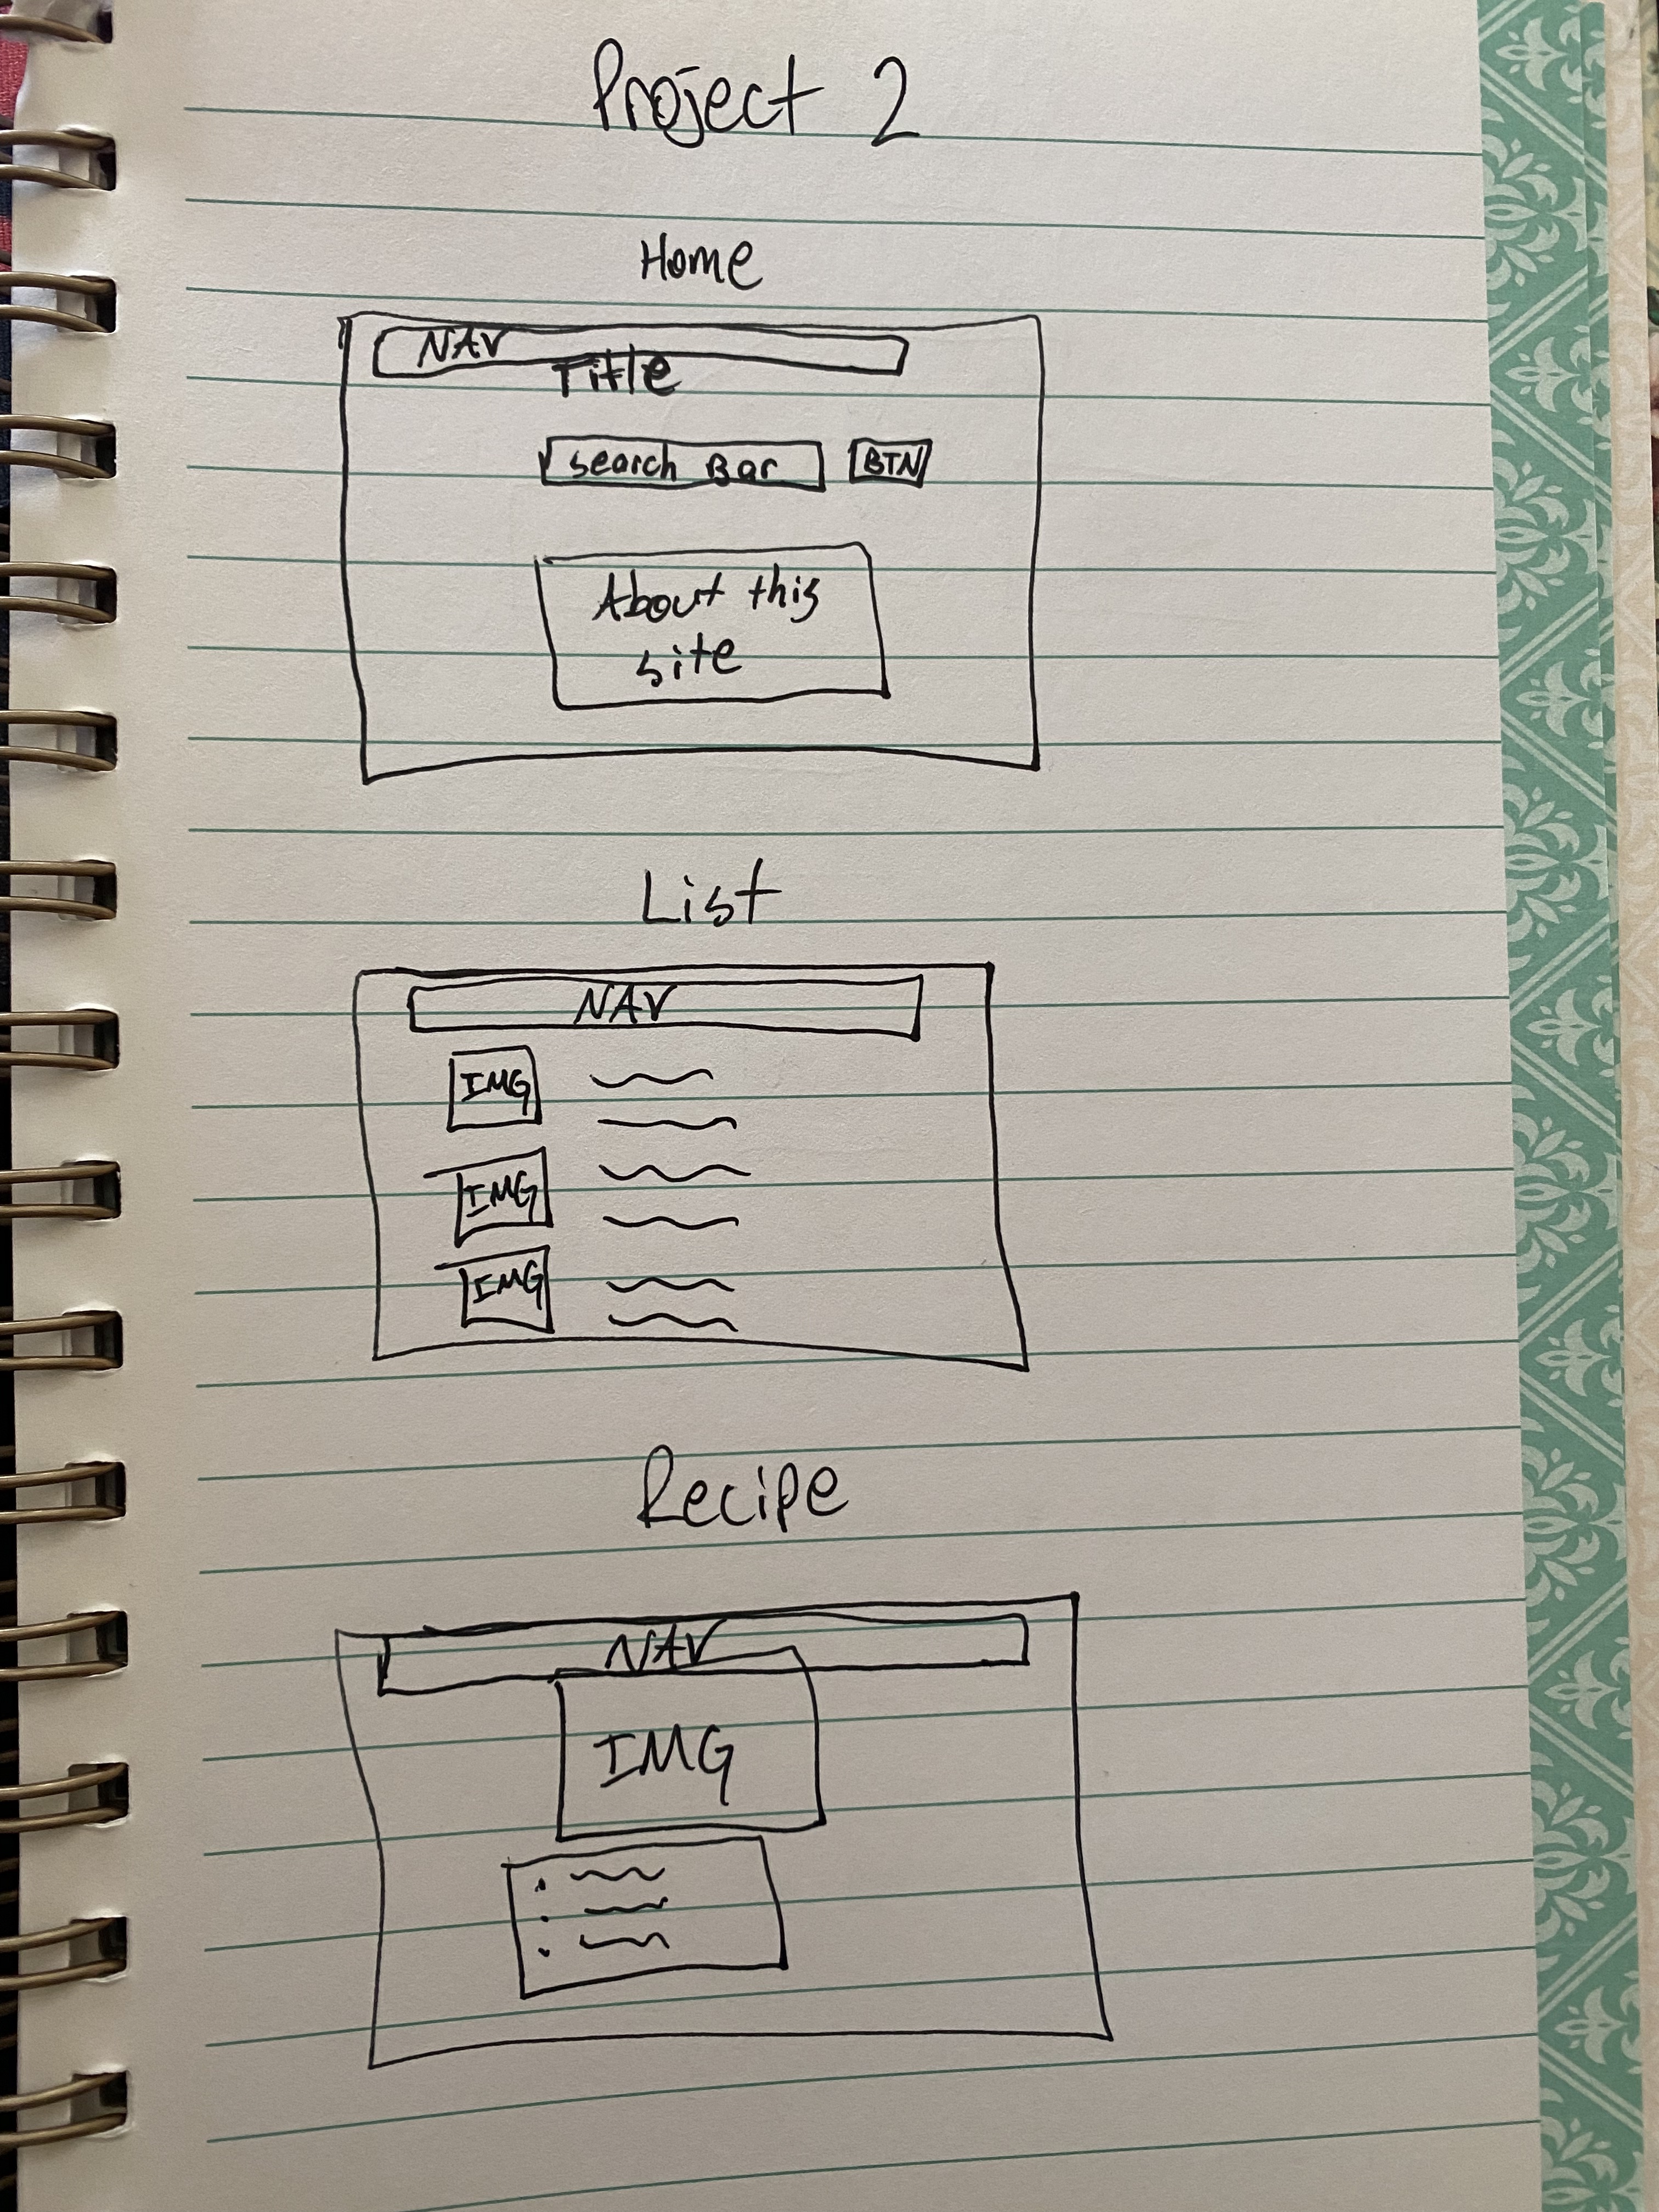 Project 2
Home
NAV
Title
search Bar BTN
About this
site
List
NAV
IMG
IMG
IMG
Recipe
NAV
IMG